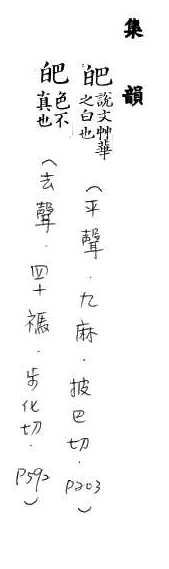 集韻
皅 說文艸華之白也 （平聲．九麻．披巴切．P203）
皅 色不真也 （去聲．四十禡．步化切．P592）